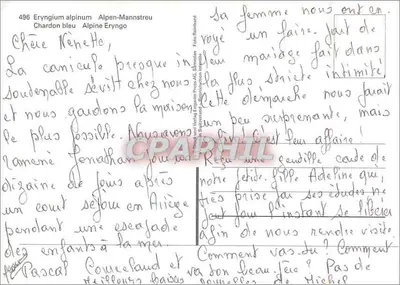 496 Eryngium alpinum Alpen-Mannstreu
Chardon bleu Alpine Eryngo
Chère Nénette,
La canicule presque in
soutenable sévit chez nous
et nous gardons la maison
le plus possible. Nous avons
ramené Jonathan pour une
dizaine de jours après
un court séjour en Ariège
pendant une escapade
des enfants à la mer.
Pascal et
sa femme nous ont en
voyé un faire part de
mariage fait dans
la plus stricte intimité,
Cette démarche nous parait
un peu surprenante, mais
c'est leur affaire!
Reçu une gentille carte de
notre petite fille Adeline qui,
très prise par ses études ne
peut pour l'instant se libérer
afin de nous rendre visite.
Comment vas-tu? Comment
va ton beau-père? Pas de
nouvelles de Michel
Meilleurs baisers
CPARHIL